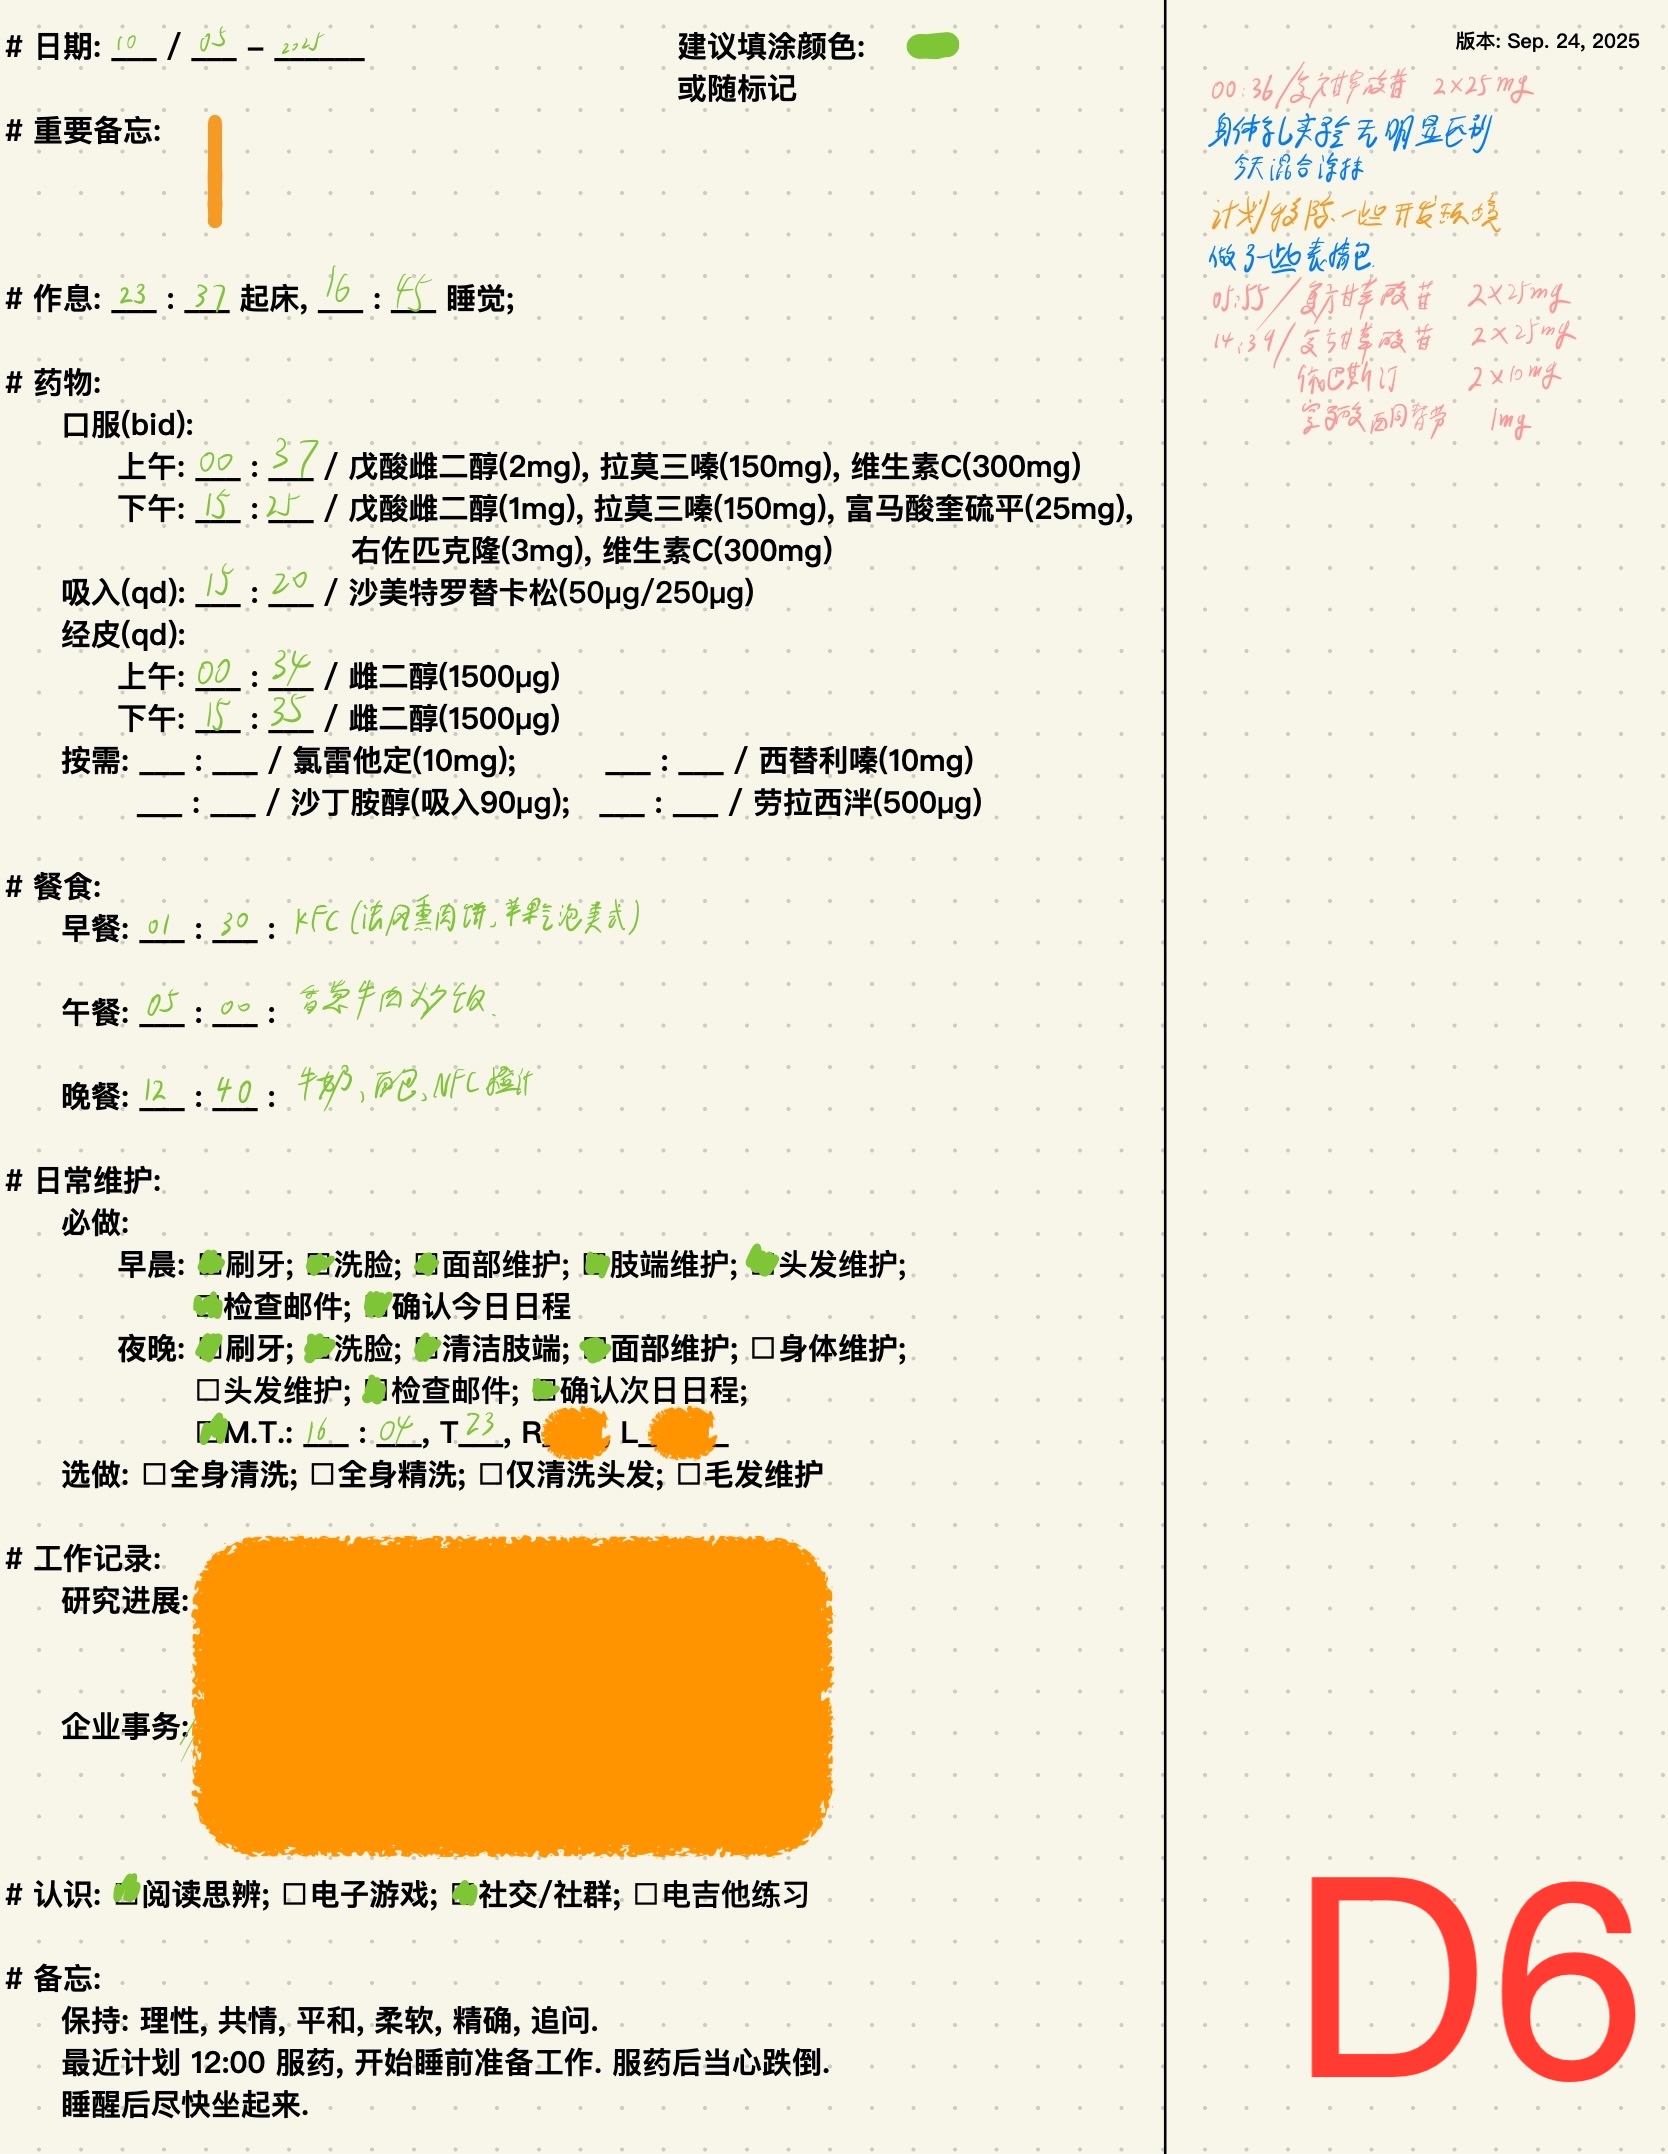 # 日期: 10 / 05 – 2025
建议填涂颜色:
或随标记
# 重要备忘:
# 作息: 23 : 37 起床, 16 : 45 睡觉;
# 药物:
口服(bid):
上午: 00 : 37 / 戊酸雌二醇(2mg), 拉莫三嗪(150mg), 维生素C(300mg)
下午: 15 : 25 / 戊酸雌二醇(1mg), 拉莫三嗪(150mg), 富马酸奎硫平(25mg),
右佐匹克隆(3mg), 维生素C(300mg)
吸入(qd): 15 : 20 / 沙美特罗替卡松(50μg/250μg)
经皮(qd):
上午: 00 : 34 / 雌二醇(1500μg)
下午: 15 : 35 / 雌二醇(1500μg)
按需: ___ : ___ / 氯雷他定(10mg); ___ : ___ / 西替利嗪(10mg)
___ : ___ / 沙丁胺醇(吸入90μg); ___ : ___ / 劳拉西泮(500μg)
# 餐食:
早餐: 01 : 30 : KFC (法风熏肉饼、苹果气泡美式)
午餐: 05 : 00 : 香菜牛肉炒饭
晚餐: 12 : 40 : 牛奶、面包、NFC橙汁
# 日常维护:
必做:
早晨: 刷牙; 洗脸; 面部维护; 肢端维护; 头发维护;
检查邮件; 确认今日日程
夜晚: 刷牙; 洗脸; 清洁肢端; 面部维护; □身体维护;
□头发维护; 检查邮件; 确认次日日程;
M.T.: 16 : 04, T 23, R L
选做: □全身清洗; □全身精洗; □仅清洗头发; □毛发维护
# 工作记录:
研究进展:
企业事务:
# 认识: 阅读思辨; □电子游戏; 社交/社群; □电吉他练习
# 备忘:
保持: 理性, 共情, 平和, 柔软, 精确, 追问.
最近计划 12:00 服药, 开始睡前准备工作. 服药后当心跌倒.
睡醒后尽快坐起来.
版本: Sep. 24, 2025
00:36/复方甘草酸苷 2×25mg
身体乳实验无明显区别
今天混合涂抹
计划移除一些开发环境
做了一些表情包
05:55/复方甘草酸苷 2×25mg
14:39/复方甘草酸苷 2×25mg
依巴斯汀 2×10mg
1mg
D6